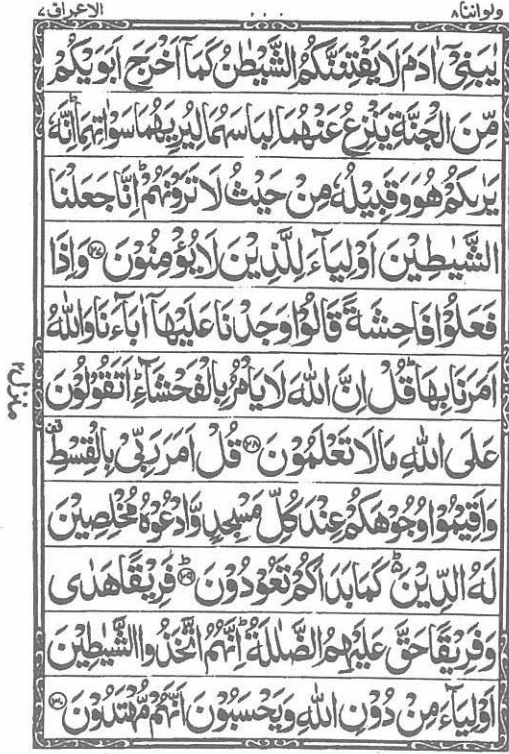 ولواننا ٨
الاعراف ٧
يٰبَنِىْٓ اٰدَمَ لَا يَفْتِنَنَّكُمُ الشَّيْطٰنُ كَمَآ اَخْرَجَ اَبَوَيْكُمْ
مِّنَ الْجَنَّةِ يَنْزِعُ عَنْهُمَا لِبَاسَهُمَا لِيُرِيَهُمَا سَوْاٰتِهِمَا ؕ اِنَّهٗ
يَرٰىكُمْ هُوَ وَقَبِيْلُهٗ مِنْ حَيْثُ لَا تَرَوْنَهُمْ ؕ اِنَّا جَعَلْنَا
الشَّيٰطِيْنَ اَوْلِيَآءَ لِلَّذِيْنَ لَا يُؤْمِنُوْنَ ﴿۲۷﴾ وَاِذَا
فَعَلُوْا فَاحِشَةً قَالُوْا وَجَدْنَا عَلَيْهَآ اٰبَآءَنَا وَاللّٰهُ
اَمَرَنَا بِهَا ؕ قُلْ اِنَّ اللّٰهَ لَا يَاْمُرُ بِالْفَحْشَآءِ ؕ اَتَقُوْلُوْنَ
عَلَى اللّٰهِ مَا لَا تَعْلَمُوْنَ ﴿۲۸﴾ قُلْ اَمَرَ رَبِّىْ بِالْقِسْطِ قف
وَاَقِيْمُوْا وُجُوْهَكُمْ عِنْدَ كُلِّ مَسْجِدٍ وَّادْعُوْهُ مُخْلِصِيْنَ
لَهُ الدِّيْنَ ؕ كَمَا بَدَاَكُمْ تَعُوْدُوْنَ ﴿۲۹﴾ؕ فَرِيْقًا هَدٰى
وَفَرِيْقًا حَقَّ عَلَيْهِمُ الضَّلٰلَةُ ؕ اِنَّهُمُ اتَّخَذُوا الشَّيٰطِيْنَ
اَوْلِيَآءَ مِنْ دُوْنِ اللّٰهِ وَيَحْسَبُوْنَ اَنَّهُمْ مُّهْتَدُوْنَ ﴿۳۰﴾
منزل ۲